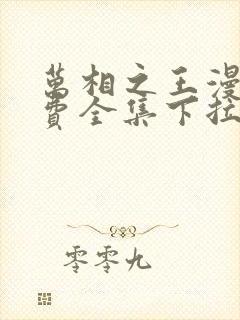 萬相之王漫
費全集下拉
零零九